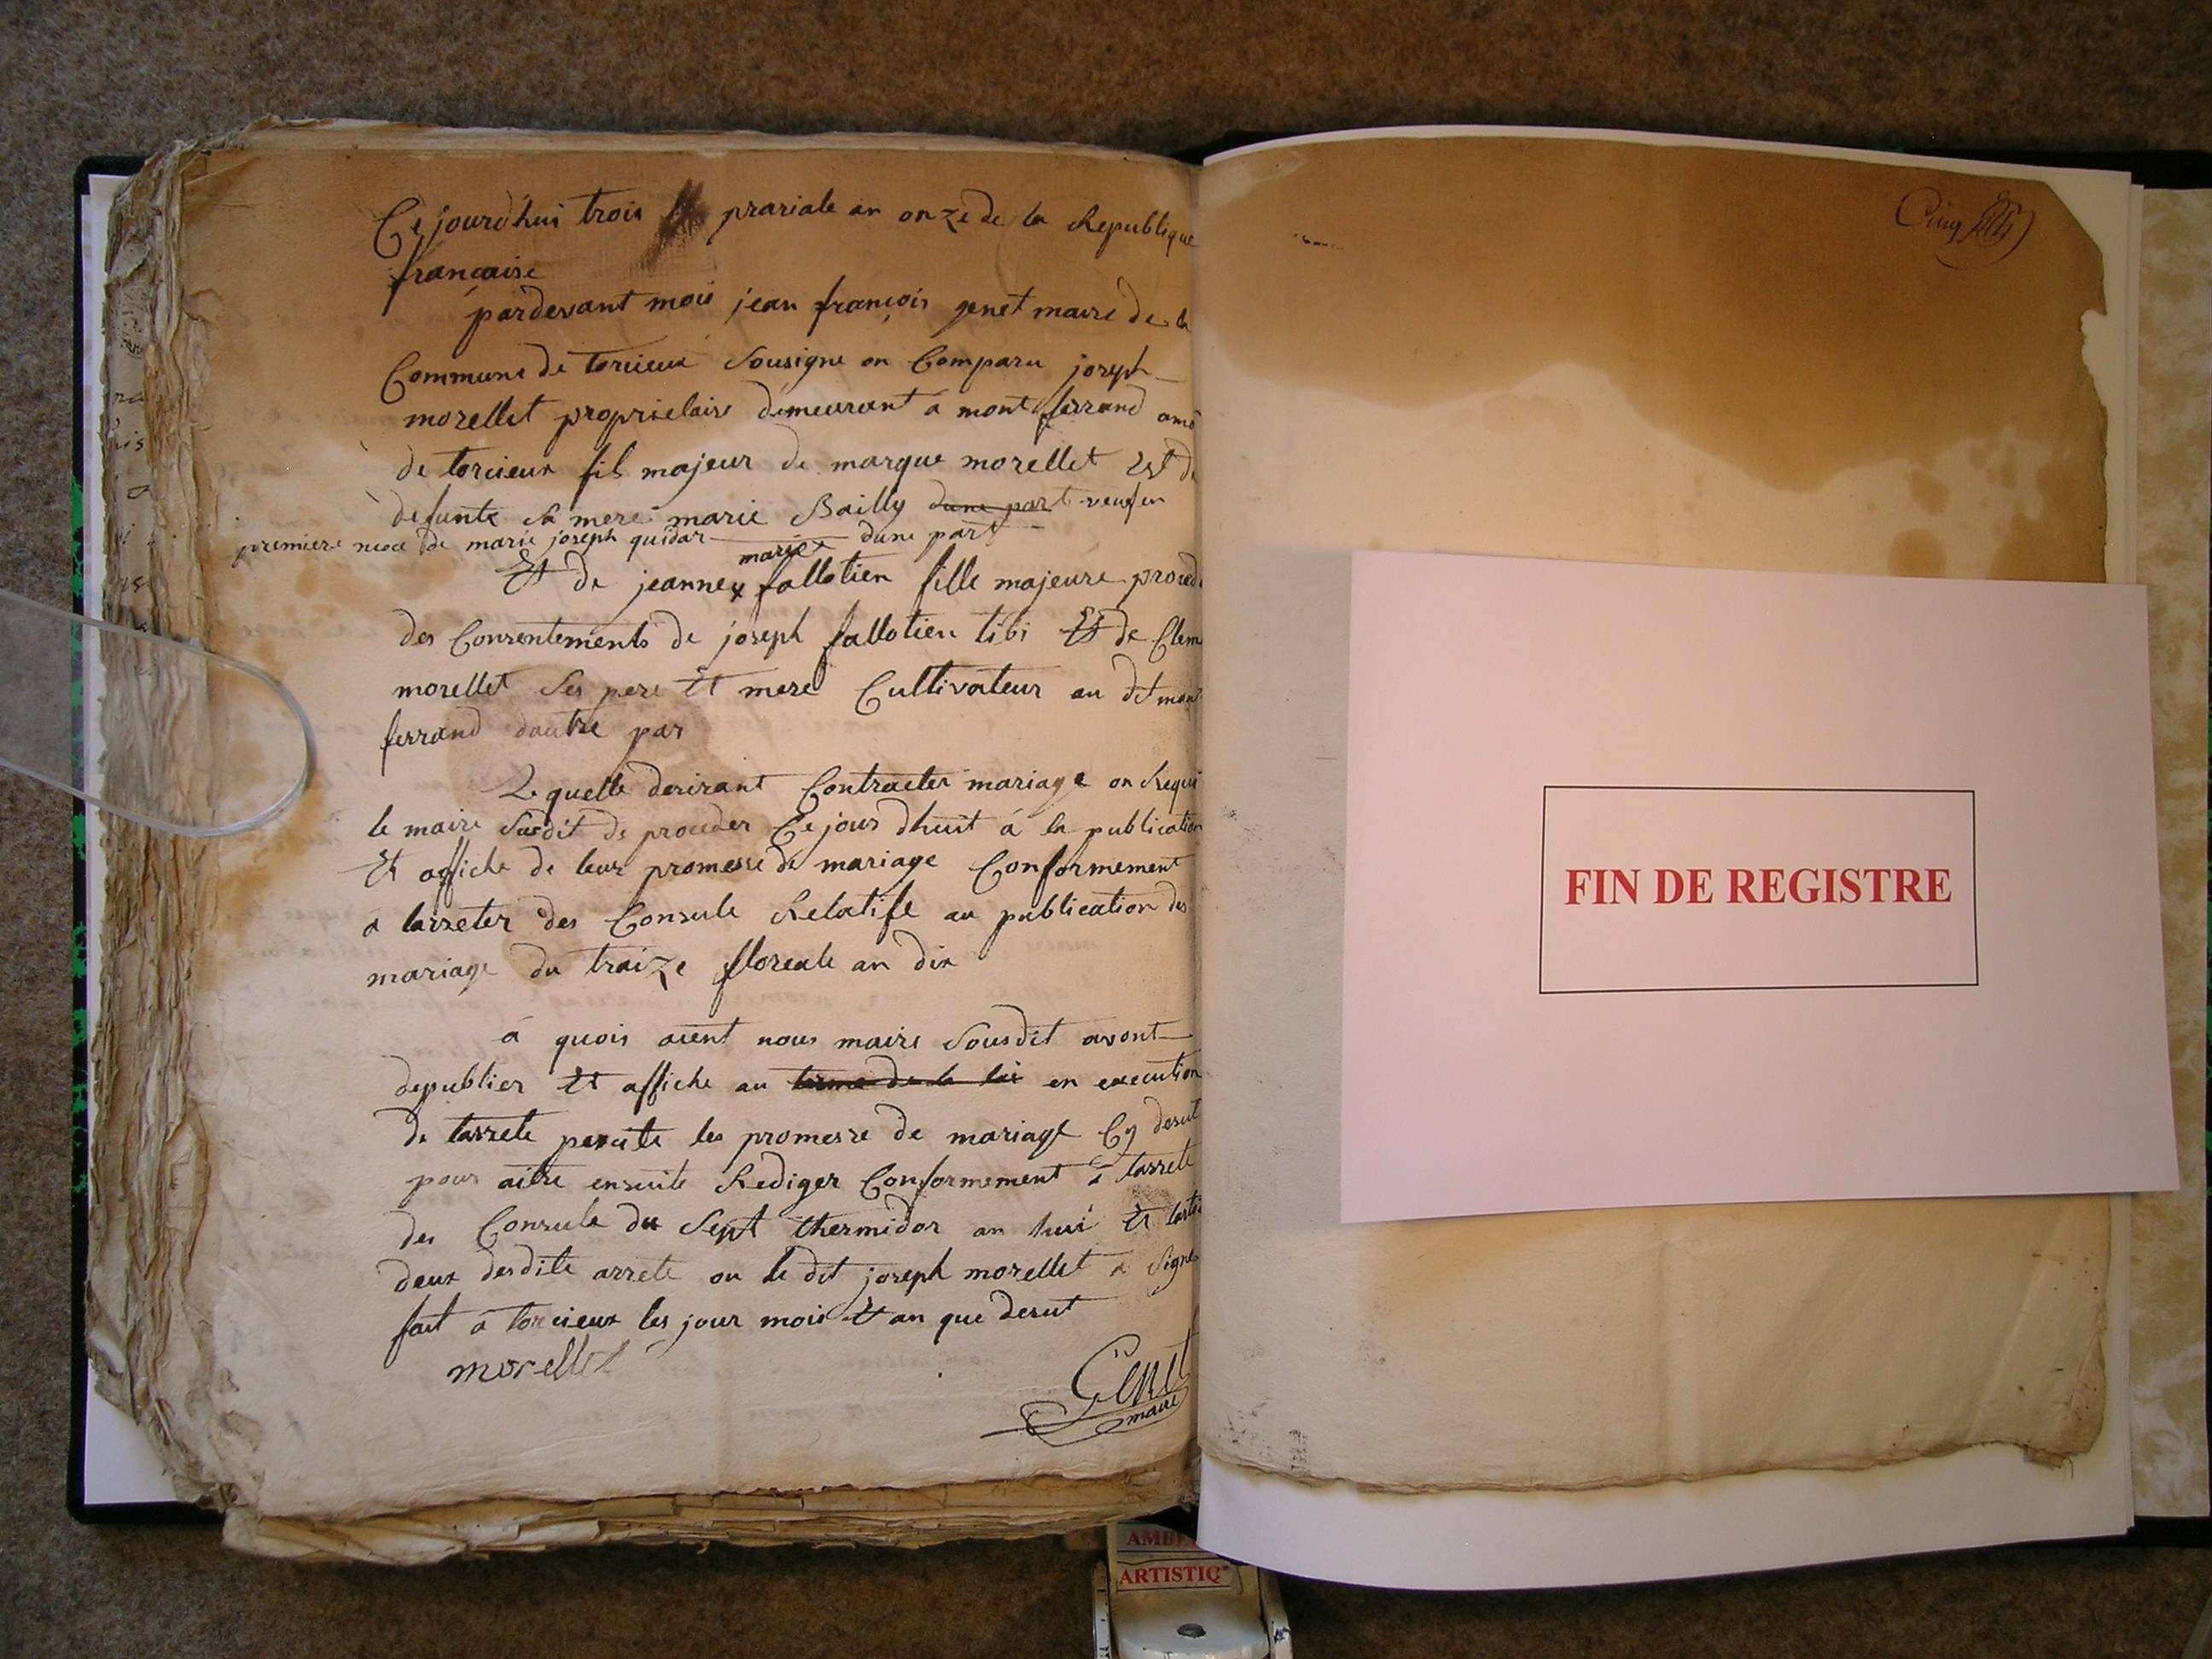 Ce jourdhui trois prariale an onze de la Republique
francaise
pardevant moi jean françois genet maire de la
Commune de torcieux Sousigne on Comparu joseph
morellet proprielaire demeurant a mont ferrand
de torcieux fil majeur de marque morellet Est de
defunte sa mere marie Bailly dune part veuf en
premiere noce de marie joseph quidar dune part
marie
Et de jeanne x fallotien fille majeure
des Consentements de joseph fallotien tibi Et de Clem
morellet Ses pere Et mere Cultivateur au dit mont
ferrand dautre par
Le quelle desirant Contracter mariage on Requi
le maire Susdit de proceder Ce jour dhuit á la publication
Et affiche de leur promesse de mariage Conformement
a larreter des Consule Relatife au publication des
mariage du traize floreale an dix
á quois aient nous maire Sousdit avont
depublier Et affiche au terme de la loi en execution
de larrete les promesse de mariage Cy desut
pour aitre ensuite Rediger Conformement á larrete
des Consule du Sept thermidor an huit Et
deux desdite arrete ou le dit joseph morellet a Signe
fait a torcieux les jour mois Et an que desut
morellet
Genet
maire
Cinq
FIN DE REGISTRE
ARTISTIQ